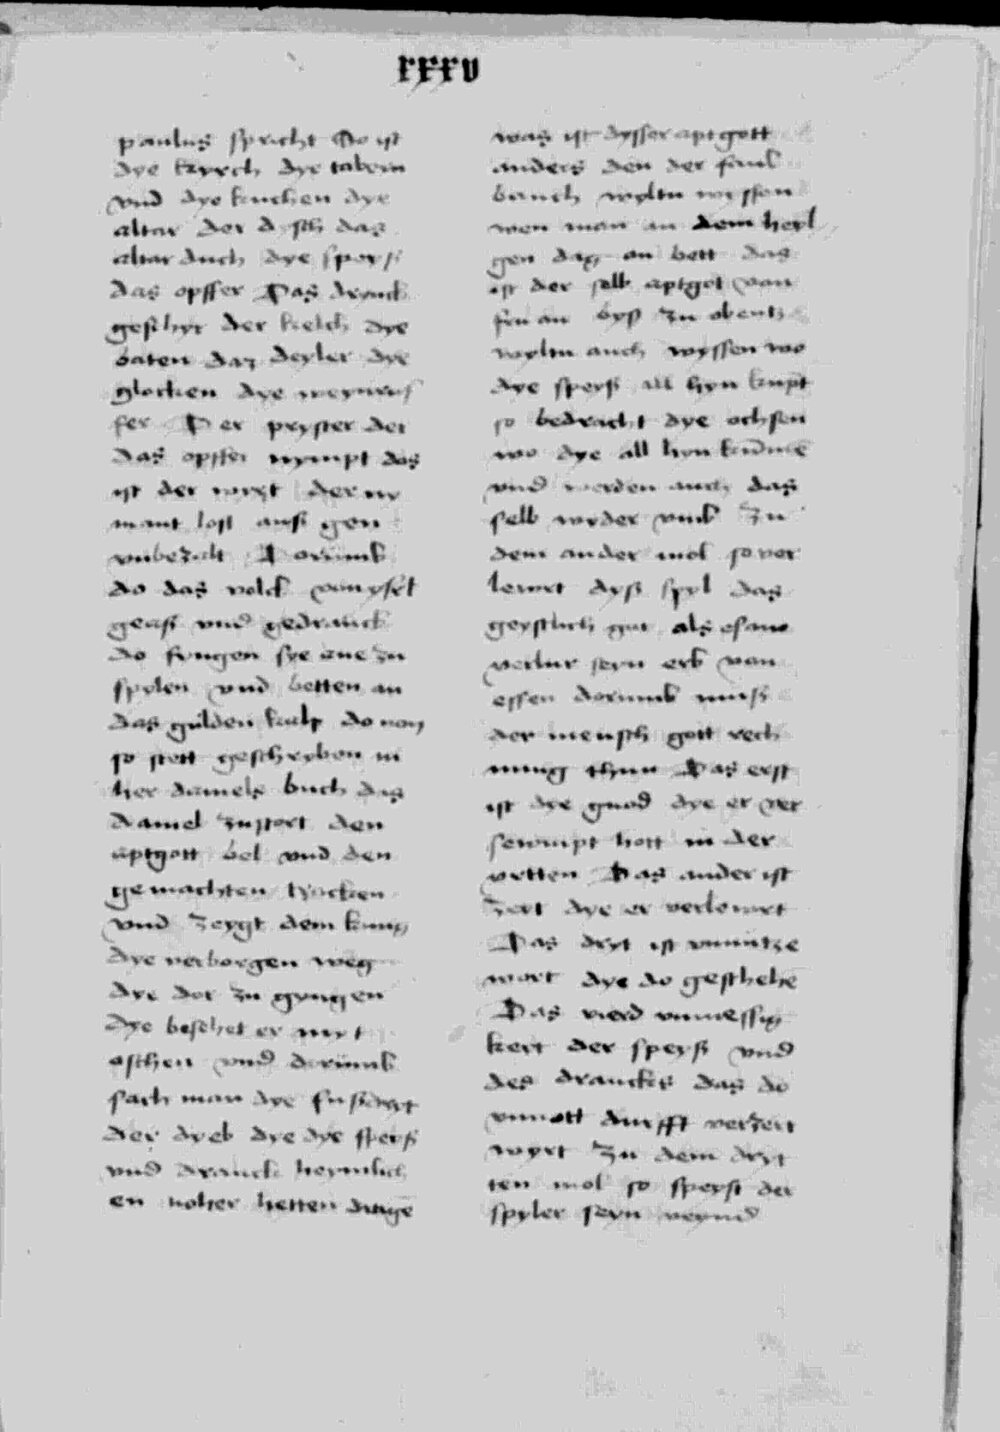 xxxv
paulus spricht Do ist
dye kyrch dye tabern
vnd dye kuchen dye
altar der dysch das
altar duch dye speyß
das opffer Das drynck
geschyr der kelch dye
baten daz deyler dye
glocken dye
fer Der pryster der
das opffer nympt das
ist der wyrt der ny
mant lost auß gen
vnbezalt Dorumb
do das volck von ysrl
geaß vnd gedranck
do fyngen sye ane zu
spylen vnd betten an
das gulden kalp do von
so stett geschryben in
her daniels buch das
daniel zustort den
aptgott bel vnd den
gemachten tracken
vnd zeygt dem kung
dye verborgen weg
dye dor zu gyngen
dye besehet er myt
aschen vnd dorumb
sach man dye
der dyeb dye dye speyß
vnd dranck heymlich
en noher hetten
was ist dysser aptgott
anders den der faul
bauch wyltu wyssen
wen man an dem heyl
gen dag an bett das
ist der selb aptgot von
fru an byß zu obentz
wyltu auch wyssen wo
dye speyß all hyn kupt
so bedracht dye ochsen
wo dye all hyn kumē
vnd werden auch das
selb wyder vmb zu
dem ander mol so ver
lewrt dyß spyl das
geystlich gut als esaw
verlur seyn erb von
essen dorumb muß
der mensch gott rech
nung thun Das erst
ist dye gnod dye er ver
sewmpt hott in der
vrtten Das ander ist
zert dye er verlewrt
Das dryt ist vnnutze
wort dye do geschehē
Das vierd vnmessig
keit der speyß vnd
des dranckes das do
vnnott durfft verzert
wyrt Zu dem dryt
ten mol so speyst der
spyler seyn veynd